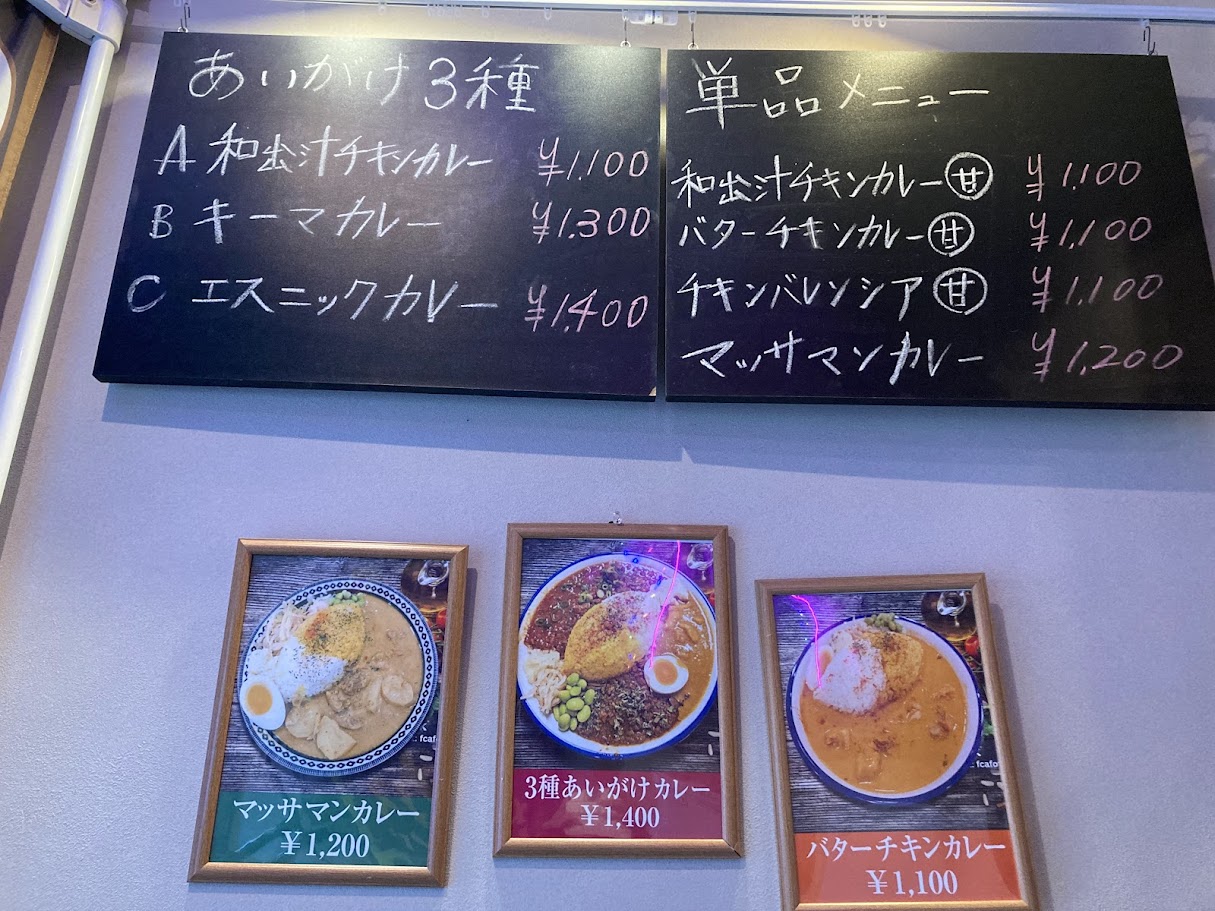 あいがけ3種
A 和出汁チキンカレー ¥1.100
B キーマカレー ¥1.300
C エスニックカレー ¥1.400
単品メニュー
和出汁チキンカレー㊙甘 ¥1.100
バターチキンカレー甘 ¥1.100
チキンバレンシア甘 ¥1.100
マッサマンカレー ¥1.200
マッサマンカレー
¥1,200
3種あいがけカレー
¥1,400
バターチキンカレー
¥1,100